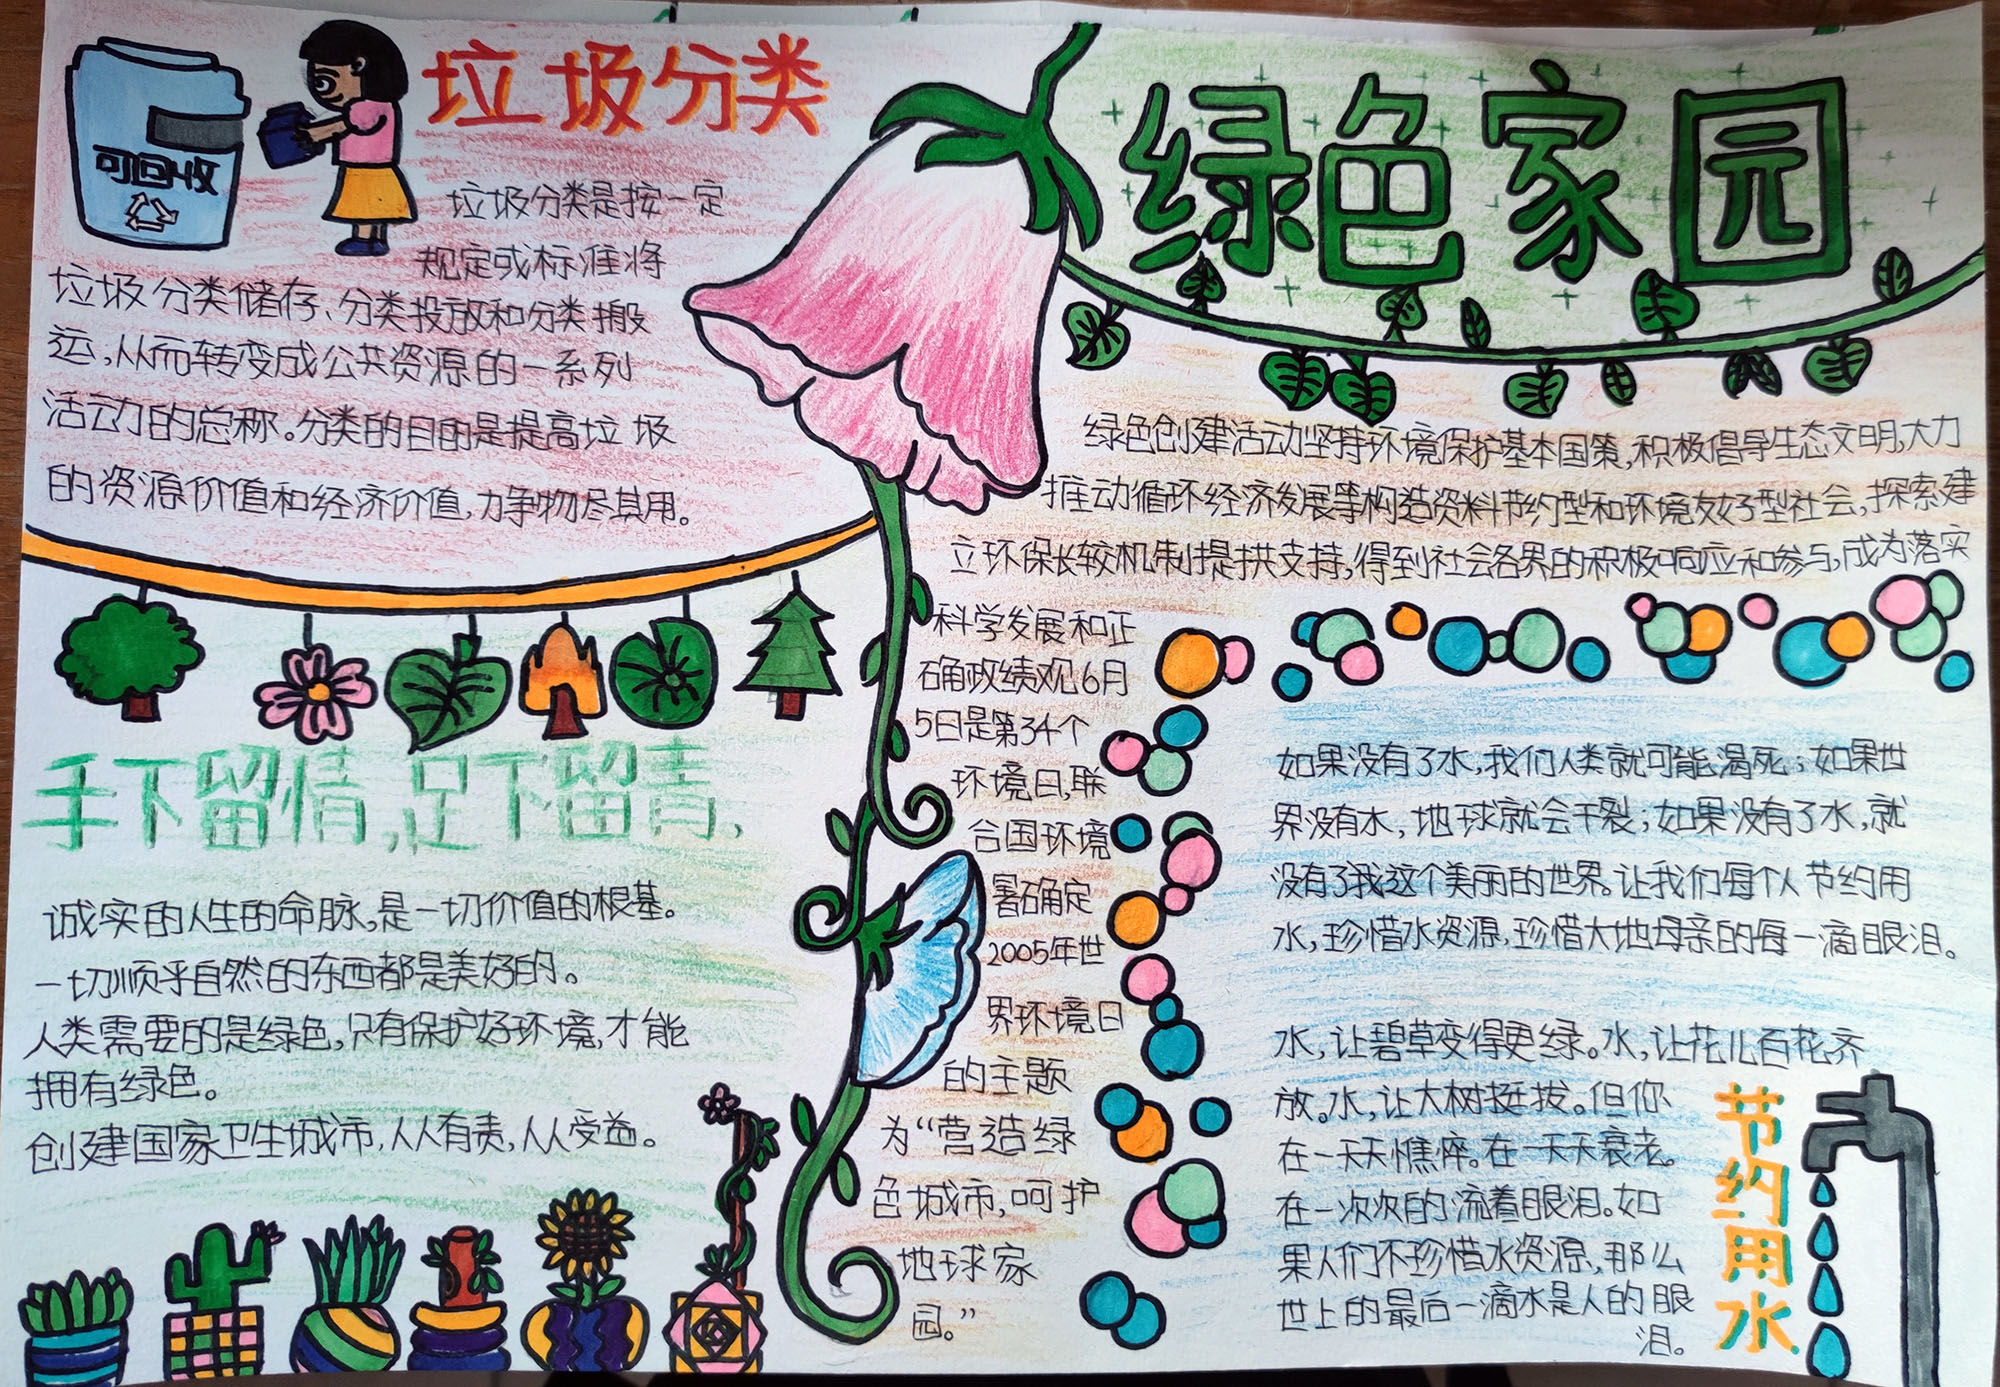 垃圾分类
可回收
垃圾分类是按一定
规定或标准将
垃圾分类储存、分类投放和分类搬
运,从而转变成公共资源的一系列
活动的总称。分类的目的是提高垃圾
的资源价值和经济价值,力争物尽其用。
手下留情,足下留青,
诚实的人生的命脉,是一切价值的根基。
一切顺乎自然的东西都是美好的。
人类需要的是绿色,只有保护好环境,才能
拥有绿色。
创建国家卫生城市,人人有责,人人受益。
绿色家园
绿色创建活动坚持环境保护基本国策,积极倡导生态文明,大力
推动循环经济发展等构造资料节约型和环境友好型社会,探索建
立环保长较机制提拱支持,得到社会各界的积极响应和参与,成为落实
科学发展和正
确政绩观6月
5日是第34个
环境日,联
合国环境
署确定
2005年世
界环境日
的主题
为“营造绿
色城市,呵护
地球家
园。”
如果没有了水,我们人类就可能渴死;如果世
界没有水,地球就会干裂;如果没有了水,就
没有了我这个美丽的世界。让我们每个人节约用
水,珍惜水资源,珍惜大地母亲的每一滴眼泪。
水,让碧草变得更绿。水,让花儿百花齐
放。水,让大树挺拔。但你
在一天天憔悴。在一天天衰老。
在一次次的流着眼泪。如
果人们不珍惜水资源,那么
世上的最后一滴水是人的眼
泪。
节约用水